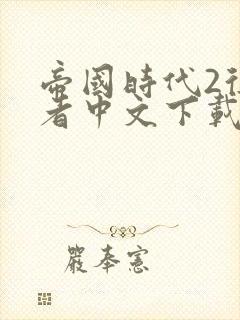 帝國時代2征
者中文下載
嚴奉憲